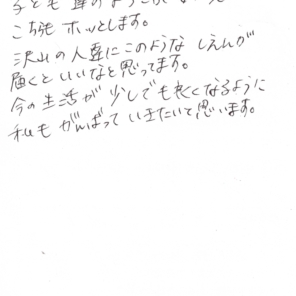 子ども達のよろこ
こちらも ホッとします。
沢山の人達にこのような しえんが
届くと いいなと思ってます。
今の生活が 少しでも良くなるように
私も がんばって いきたいて思います。